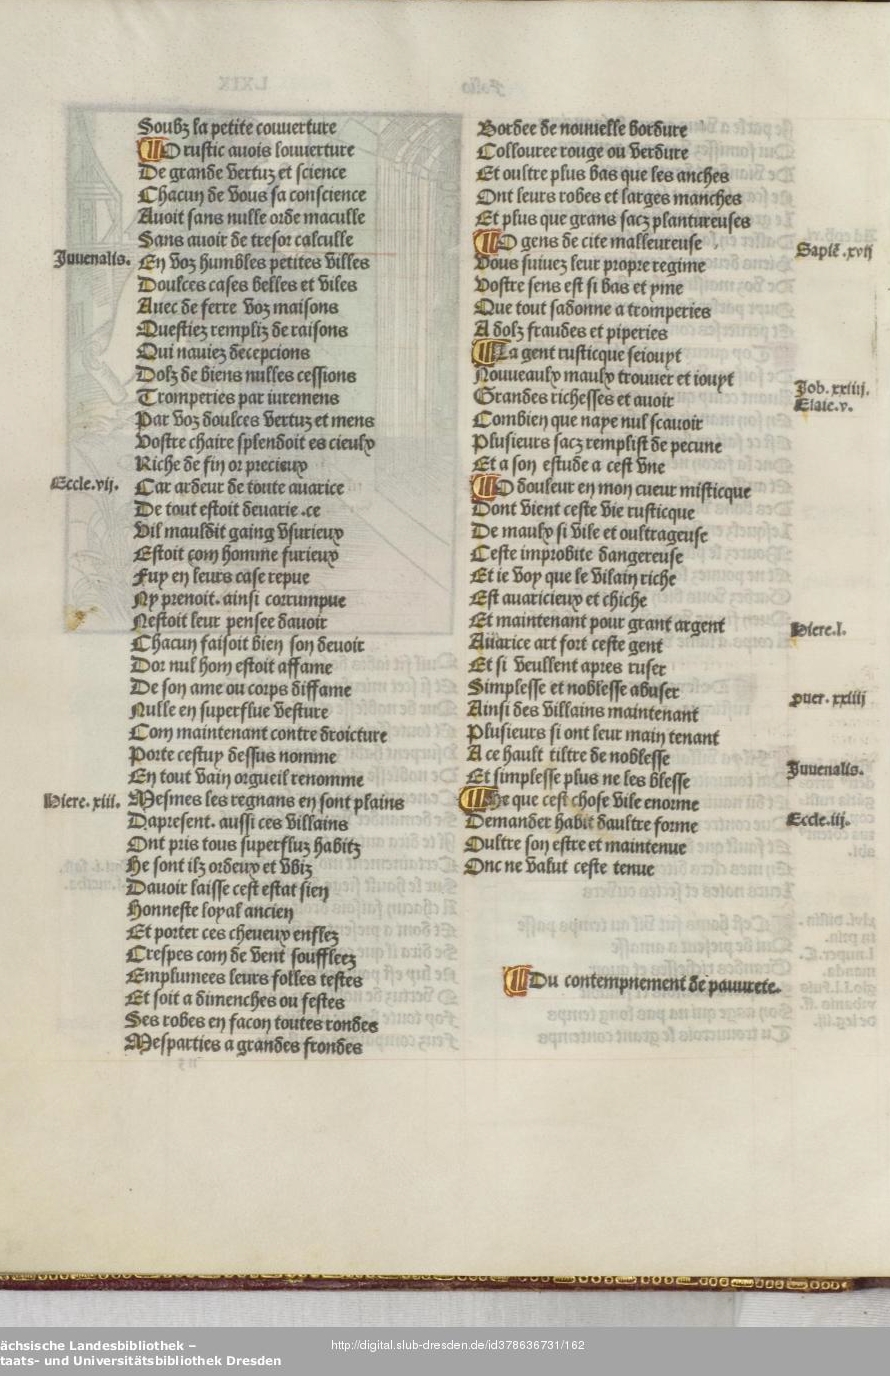 Soubz la petite couuerture
O rustic auois louuerture
De grande vertuz et science
Chacun de vous sa conscience
Auoit sans nulle orde maculle
Sans auoir de tresor calculle
Juuenalis.
En voz humbles petites villes
Doulces cases belles et viles
Auec de ferre voz maisons
Questiez rempliz de raisons
Qui nauiez decepcions
Dolz de biens nulles cessions
Tromperies par iuremens
Par voz doulces vertuz et mens
Vostre chaire splendoit es cieulx
Riche de fin or precieux
Eccle.vij.
Car ardeur de toute auarice
De tout estoit deuarie .ce
Vil mauldit gaing vsurieux
Estoit com homme furieux
Fuy en leurs case repue
Ny prenoit. ainsi corrumpue
Nestoit leur pensee dauoir
Chacun faisoit bien son deuoir
Dor nul hom estoit affame
De son ame ou corps diffame
Nulle en superflue vesture
Com maintenant contre droicture
Porte cestuy dessus nomme
En tout vain orgueil renomme
Hiere.xiii.
Mesmes les regnans en sont plains
Dapresent. aussi ces villains
Ont pris tous superfluz habitz
He sont ilz ordeux et vbiz
Dauoir laisse cest estat sien
Honneste loyal ancien
Et porter ces cheueux enflez
Crespes com de vent soufflez
Emplumees leurs folles testes
Et soit a dimenches ou festes
Ses robes en facon toutes rondes
Mesparties a grandes frondes
Bordee de nouuelle bordure
Collouree rouge ou verdure
Et oultre plus bas que les anches
Ont leurs robes et larges manches
Et plus que grans sacz plantureuses
O gens de cite malleureuse
Sapiẽ.xvij
Vous suiuez leur propre regime
Vostre sens est si bas et yme
Que tout sadonne a tromperies
A dolz fraudes et piperies
La gent rusticque seiouyt
Nouueaulx maulx trouuer et iouyt
Job.xxiiij.
Grandes richesses et auoir
Elaie.v.
Combien que naye nul scauoir
Plusieurs sacz remplist de pecune
Et a son estude a cest vne
O douleur en mon cueur misticque
Dont vient ceste vie rusticque
De maulx si vile et oultrageuse
Ceste improbite dangereuse
Et ie voy que le vilain riche
Est auaricieux et chiche
Et maintenant pour grant argent
Hiere.l.
Auarice art fort ceste gent
Et si veullent apres ruser
Simplesse et noblesse abuser
puer.xxiiij
Ainsi des villains maintenant
Plusieurs si ont leur main tenant
A ce hault tiltre de noblesse
Juuenalis.
Et simplesse plus ne les blesse
He que cest chose vile enorme
Eccle.iij.
Demander habit daultre forme
Oultre son estre et maintenue
Onc ne valut ceste tenue
Du contempnement de pauurete.
ächsische Landesbibliothek –
taats- und Universitätsbibliothek Dresden
http://digital.slub-dresden.de/id378636731/162